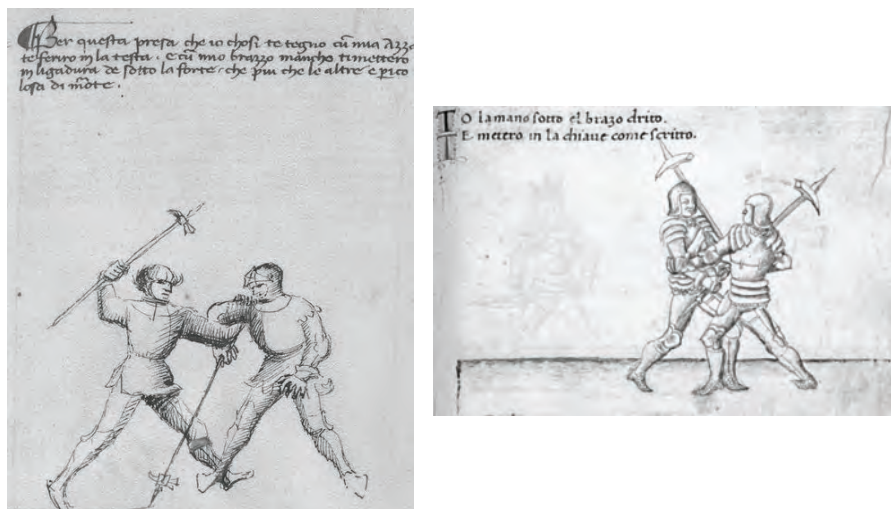 Per questa presa che io chosi te tegno cũ mia Azza
te feriro in la testa . e cũ mio brazzo mancho ti mettero
in ligadura de sotto la forte che piu che le altre e perico
losa di mōte .
TO la mano sotto el brazo drito.
TE metero in la chiaue come scritto.